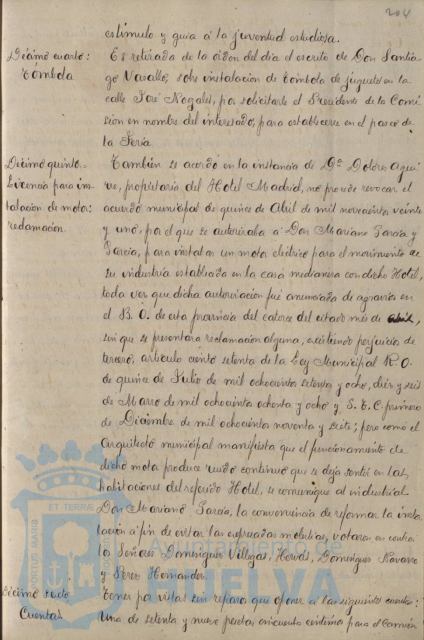 204
estímulo y guía á la juventud estudiosa.
Décimo cuarto:
Tómbola
Es retirada de la orden del día el escrito de Don Santia-
go Navallos, sobre instalación de tómbola de juguetes en la
calle José Nogales, por solicitarlo el Presidente de la Comi-
sión en nombre del interesado, para establecerse en el paseo de
la Feria.
Décimo quinto.-
Licencia para ins-
talación de motor:
reclamación.
También se acordó en la instancia de Dª Dolores Agui-
rre, propietaria del Hotel Madrid, no procede revocar el
acuerdo municipal de quince de Abril de mil novecientos veinte
y uno, por el que se autorizaba á Don Mariano García y
García, para instalar un motor eléctrico para el movimiento de
su industria establecida en la casa medianera con dicho Hotel,
toda vez que dicha autorización fué anunciada de agravios en
el B. O. de esta provincia del catorce del citado mes de Abril,
sin que se presentara reclamación alguna, existiendo perjuicio de
tercero, artículo ciento setenta de la Ley Municipal R. O.
de quince de Julio de mil ochocientos setenta y ocho, diez y seis
de Marzo de mil ochocientos ochenta y ocho y S. T. C. primero
de Diciembre de mil ochocientos noventa y siete; pero como el
Arquitecto municipal manifiesta que el funcionamiento de
dicho motor produce ruido continuo que se deja sentir en las
habitaciones del referido Hotel, se comunique al industrial
Don Mariano García, la conveniencia de reformar la insta-
lación á fin de evitar las expresadas molestias, votaron en contra
los Señores Domínguez Villegas, Hervás, Domínguez Navarro
y Pérez Hernández.
Décimo sexto
Cuentas
Tener por vistas sin reparo que oponer á las siguientes cuentas:
Una de setenta y nueve pesetas cincuenta céntimos para el Camión
PORTUS MARIS
ET TERRÆ
Ayuntamiento de
HUELVA